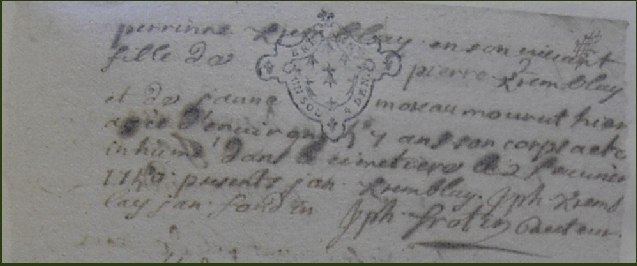 perrinne Tremblay en son vivant
fille de pierre Tremblay
et de jeanne moreau mourut hier
agée d'environ ans son corps a ete
inhumé dans le cimetiere le 2
1740 presents jan Tremblay jph Tremb
lay jan jph frotin Recteur